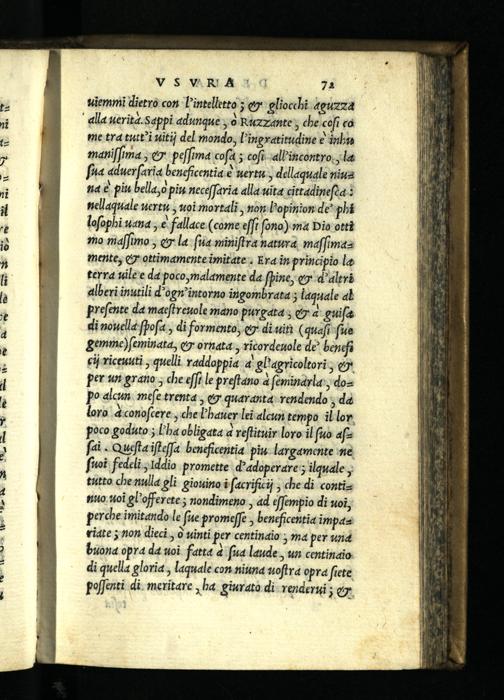 VSVRA 72
uiemmi dietro con l'intelletto; & gliocchi aguzza
alla verità. Sappi adunque, ò Ruzzante, che cosi co
me tra tutt'i uitij del mondo, l'ingratitudine è inhu
manissima, & pessima cosa; cosi all'incontro, la
sua aduersaria beneficentia è vertu, dellaquale niu-
na è piu bella, ò piu necessaria alla uita cittadinesca:
nellaquale vertu, voi mortali, non l'opinion de' phi
losophi uana, è fallace (come essi sono) ma Dio otti
mo massimo, & la sua ministra natura massima-
mente, & ottimamente imitate. Era in principio la
terra uile e da poco, malamente da spine, & d'altri
alberi inutili d'ogn'intorno ingombrata; laquale al
presente da maestreuole mano purgata, & à guisa
di nouella sposa, di formento, & di uiti (quasi sue
gemme) seminata, & ornata, ricordeuole de' benefi
cij riceuuti, quelli raddoppia à gl'agricoltori, &
per un grano, che essi le prestano à seminarla, do-
po alcun mese trenta, & quaranta rendendo, da
loro à conoscere, che l'hauer lei alcun tempo il lor
poco goduto; l'ha obligata à restituir loro il suo as-
sai. Questa istessa beneficentia piu largamente ne
suoi fedeli, Iddio promette d'adoperare; ilquale,
tutto che nulla gli giouino i sacrificij, che di conti-
nuo voi gl'offerete; nondimeno, ad essempio di uoi,
perche imitando le sue promesse, beneficentia impa-
riate; non dieci, ò uinti per centinaio; ma per una
buona opra da voi fatta à sua laude, un centinaio
di quella gloria, laquale con niuna uostra opra siete
possenti di meritare, ha giurato di renderui; &